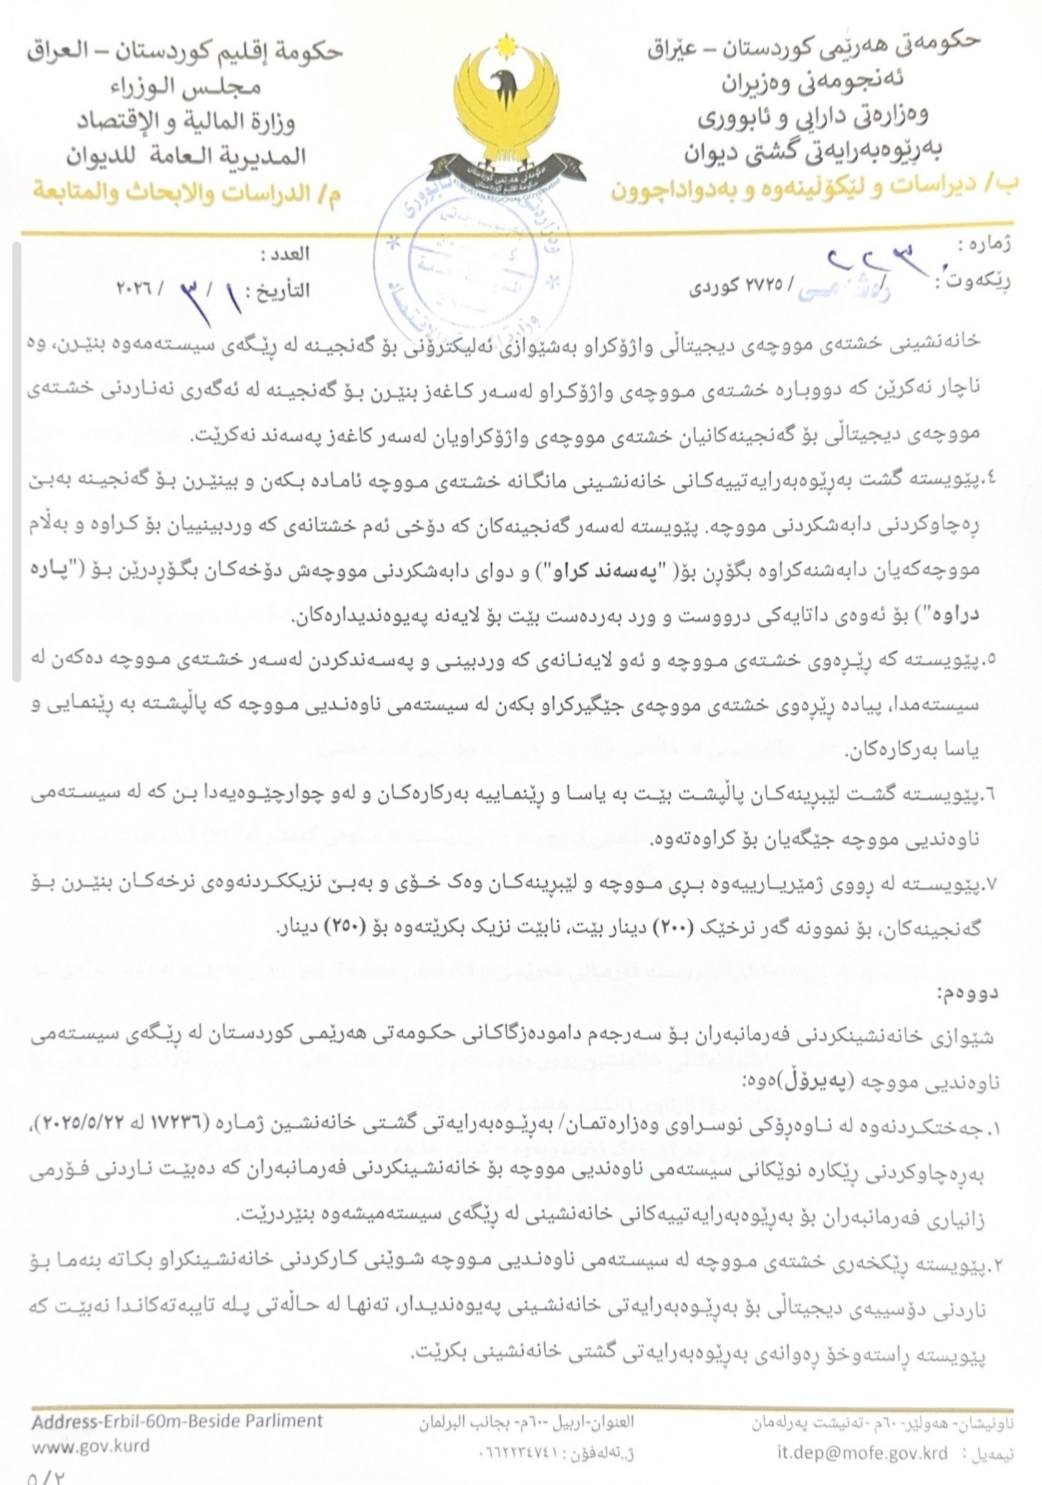 حکومەتی هەرێمی کوردستان – عێراق
ئەنجومەنی وەزیران
وەزارەتی دارایی و ئابووری
بەڕێوەبەرایەتی گشتی دیوان
ب/ دیراسات و لێکۆڵینەوە و بەدواداچوون
حكومة إقليم كوردستان – العراق
مجلس الوزراء
وزارة المالية و الإقتصاد
المديرية العامة للديوان
م/ الدراسات والابحاث والمتابعة
ژمارە : ٢٢٣
ڕێکەوت: / ڕەشەمێ / ٢٧٢٥ کوردی
العدد :
التأريخ : ١ / ٣ / ٢٠٢٦
خانەنشینی خشتەی مووچەی دیجیتاڵی واژۆکراو بەشێوازی ئەلیکترۆنی بۆ گەنجینە لە ڕێگەی سیستەمەوە بنێرن، وە
ناچار نەکرێن کە دووبارە خشتەی مووچەی واژۆکراو لەسەر کاغەز بنێرن بۆ گەنجینە لە ئەگەری نەناردنی خشتەی
مووچەی دیجیتاڵی بۆ گەنجینەکانیان خشتەی مووچەی واژۆکراویان لەسەر کاغەز پەسەند نەکرێت.
٤.پێویستە گشت بەڕێوەبەرایەتییەکانی خانەنشینی مانگانە خشتەی مووچە ئامادە بکەن و بینێرن بۆ گەنجینە بەبێ
ڕەچاوکردنی دابەشکردنی مووچە. پێویستە لەسەر گەنجینەکان کە دۆخی ئەم خشتانەی کە وردبینییان بۆ کراوە و بەڵام
مووچەکەیان دابەشنەکراوە بگۆڕن بۆ( "پەسەند کراو") و دوای دابەشکردنی مووچەش دۆخەکان بگۆڕدرێن بۆ ("پارە
دراوە") بۆ ئەوەی داتایەکی درووست و ورد بەردەست بێت بۆ لایەنە پەیوەندیدارەکان.
٥.پێویستە کە ڕێڕەوی خشتەی مووچە و ئەو لایەنانەی کە وردبینی و پەسەندکردن لەسەر خشتەی مووچە دەکەن لە
سیستەمدا، پیادە ڕێڕەوی خشتەی مووچەی جێگیرکراو بکەن لە سیستەمی ناوەندیی مووچە کە پاڵپشتە بە ڕێنمایی و
یاسا بەرکارەکان.
٦.پێویستە گشت لێبڕینەکان پاڵپشت بێت بە یاسا و ڕێنماییە بەرکارەکان و لەو چوارچێوەیەدا بن کە لە سیستەمی
ناوەندیی مووچە جێگەیان بۆ کراوەتەوە.
٧.پێویستە لە ڕووی ژمێریارییەوە بڕی مووچە و لێبڕینەکان وەک خۆی و بەبێ نزیککردنەوەی نرخەکان بنێرن بۆ
گەنجینەکان، بۆ نموونە گەر نرخێک (٢٠٠) دینار بێت، نابێت نزیک بکرێتەوە بۆ (٢٥٠) دینار.
دووەم:
شێوازی خانەنشینکردنی فەرمانبەران بۆ سەرجەم دامودەزگاکانی حکومەتی هەرێمی کوردستان لە ڕێگەی سیستەمی
ناوەندیی مووچە (پەیڕۆڵ)ەوە:
١.جەختکردنەوە لە ناوەڕۆکی نوسراوی وەزارەتمان/ بەڕێوەبەرایەتی گشتی خانەنشین ژمارە (١٧٢٣٦ لە ٢٠٢٥/٥/٢٢)،
بەڕەچاوکردنی ڕێکارە نوێکانی سیستەمی ناوەندیی مووچە بۆ خانەنشینکردنی فەرمانبەران کە دەبێت ناردنی فۆرمی
زانیاری فەرمانبەران بۆ بەڕێوەبەرایەتییەکانی خانەنشینی لە ڕێگەی سیستەمیشەوە بنێردرێت.
٢.پێویستە ڕێکخەری خشتەی مووچە لە سیستەمی ناوەندیی مووچە شوێنی کارکردنی خانەنشینکراو بکاتە بنەما بۆ
ناردنی دۆسییەی دیجیتاڵی بۆ بەڕێوەبەرایەتی خانەنشینی پەیوەندیدار، تەنها لە حاڵەتی پلە تایبەتەکاندا نەبێت کە
پێویستە ڕاستەوخۆ ڕەوانەی بەڕێوەبەرایەتی گشتی خانەنشینی بکرێت.
ناونیشان- هەولێر- ٦٠م -تەنیشت پەرلەمان
ئیمەیل : it.dep@mofe.gov.krd
العنوان-اربيل -٦٠م- بجانب البرلمان
ژ.تەلەفۆن : ٠٦٦٢٢٣٤٧٤١
Address-Erbil-60m-Beside Parliment
www.gov.kurd
٥/٢